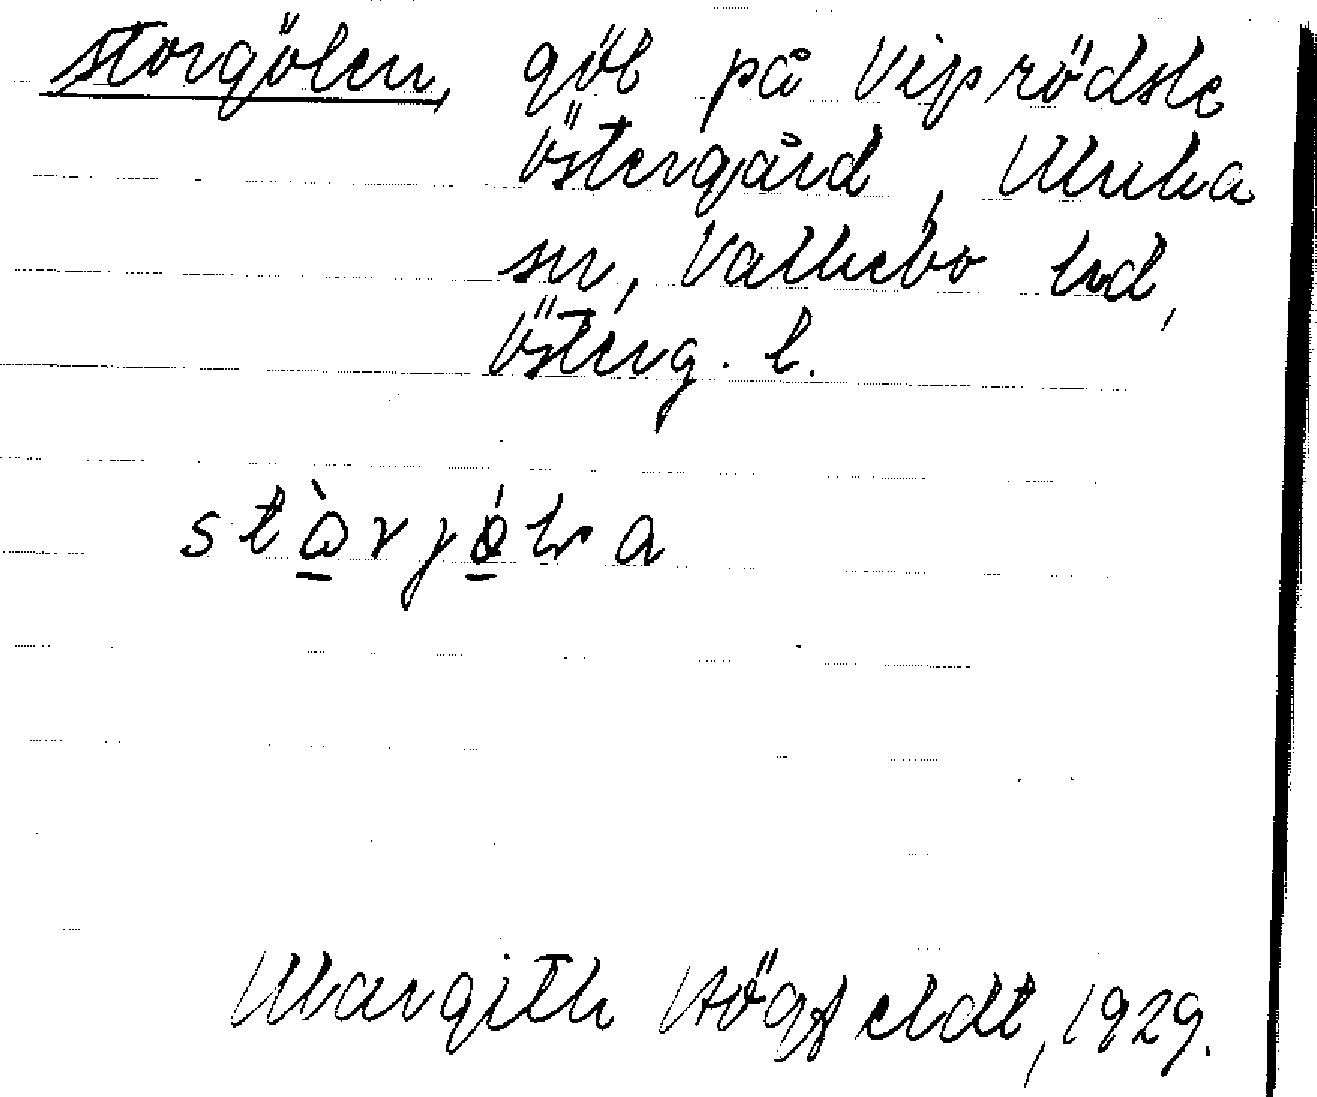 Storgölen, göl på Viprödsle
Östergård, Ulrika
sn, Valkebo hd,
Österg. l.
Margith Högfeldt, 1929.